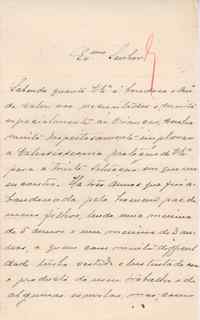 Ex.mo Senhor
Sabendo quanto V.Ex.ª é bondoso e
de valer aos necessitados e, muito
especialmente, ás crianças, venho
muito respeitosamente implorar
a valiosissima protecção de V.Ex.ª
para a triste situação em que me
encontro. Ha tres annos que fui a-
bandonada pelo homem pae de
meus filhos, tendo uma menina
de 5 annos e um menino de 3 an-
nos, a quem com muita difficul-
dade tenho vestido e sustentado com
o producto do meu trabalho e de
algumas esmolas, mas, como